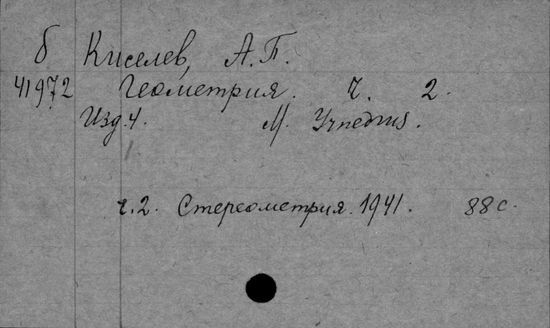 б Киселев, А.П.
41972 Геометрия. ч. 2.
Изд. 4. М. Учпедгиз.
ч.2. Стереометрия. 1941. 88 с.